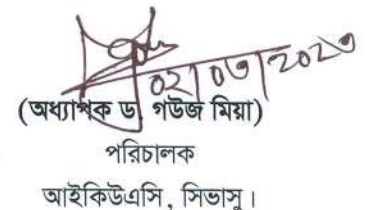 02/07/2023
(অধ্যাপক ড. গউজ মিয়া)
পরিচালক
আইকিউএসি, সিভাসু।